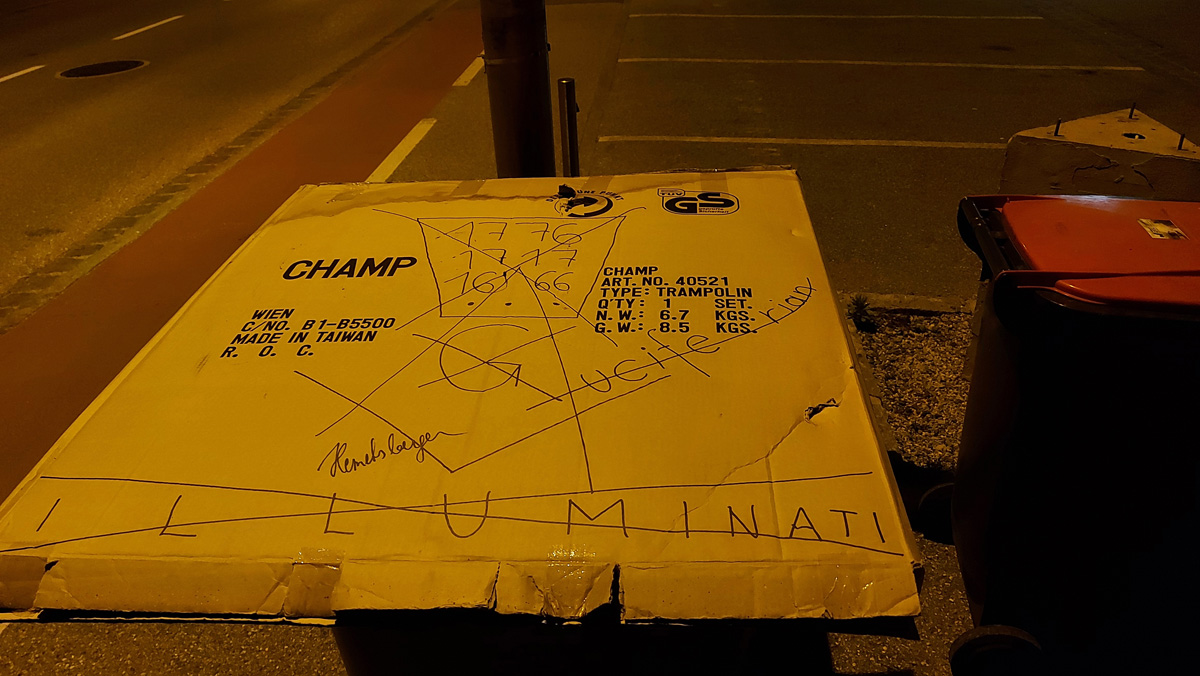 TÜV
GS
1776
1717
1666
CHAMP
CHAMP
ART. NO. 40521
TYPE: TRAMPOLIN
Q'TY: 1 SET.
N. W.: 6.7 KGS.
G. W.: 8.5 KGS.
WIEN
C/NO. B1-B5500
MADE IN TAIWAN
R. O. C.
G
Luciferiana
Hemetsberger
ILLUMINATI